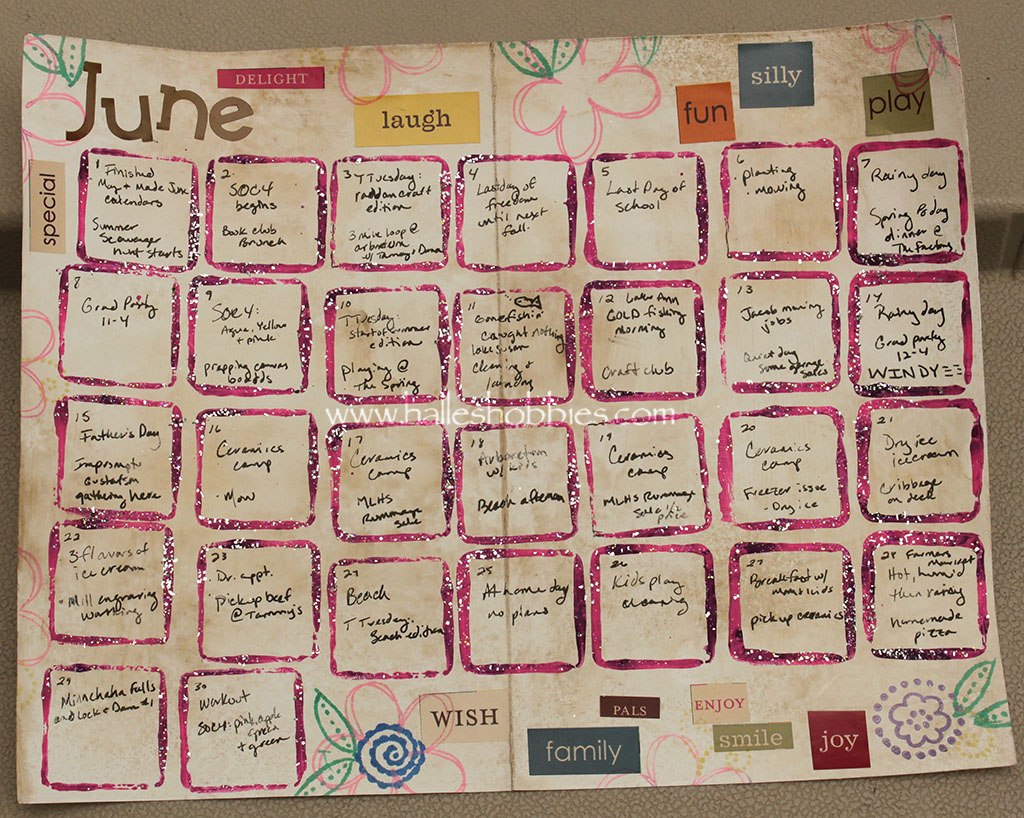 June
DELIGHT
laugh
fun
silly
play
special
1
Finished
May + Made June
calendars
Summer
Scavenger
hunt starts
2
SOC4
begins
Book club
Brunch
3
T Tuesday:
random craft
edition
3 mile loop @
arboretum
w/ Tammy, Dana
4
Last day of
freedom
until next
fall.
5
Last Day of
school
6
planting
mowing
7
Rainy day
Spring Bday
dinner @
The Factory
8
Grad Party
11-4
9
SOC4:
Aqua, Yellow
+ pink
prepping canvas
boards
10
T Tuesday:
start of summer
edition
playing @
The Spring
11
Gone fishin'
caught nothing
Lake Susan
cleaning &
laundry
12 Lake Ann
COLD fishing
morning
Craft club
13
Jacob mowing
jobs
Quiet day
some garage
sales
14
Rainy day
Grad party
12-4
WINDY
www.halleshobbies.com
15
Father's Day
Impromptu
Gustafson
gathering here
16
Ceramics
camp
· Mow
17
Ceramics
camp
MLHS
Rummage
sale
18
Arboretum
w/ kids
Beach afternoon
19
Ceramics
camp
MLHS Rummage
sale 1/2
price
20
Ceramics
camp
Freezer issue
- Dry ice
21
Dry ice
ice cream
Cribbage
on deck
22
3 flavors of
ice cream
· Mill engraving
working
23
· Dr. appt.
· Pick up beef
@ Tammy's
24
Beach
T Tuesday:
Beach edition
25
At home day
no plans
26
Kids play
cleaning
27
Breakfast w/
Mom & kids
pick up ceramics
28 Farmers
market
Hot, humid
then rainy
homemade
pizza
29
Minnehaha Falls
and Lock & Dam #1
30
Workout
SOC4: pink, apple
green
+ green
WISH
PALS
ENJOY
family
smile
joy